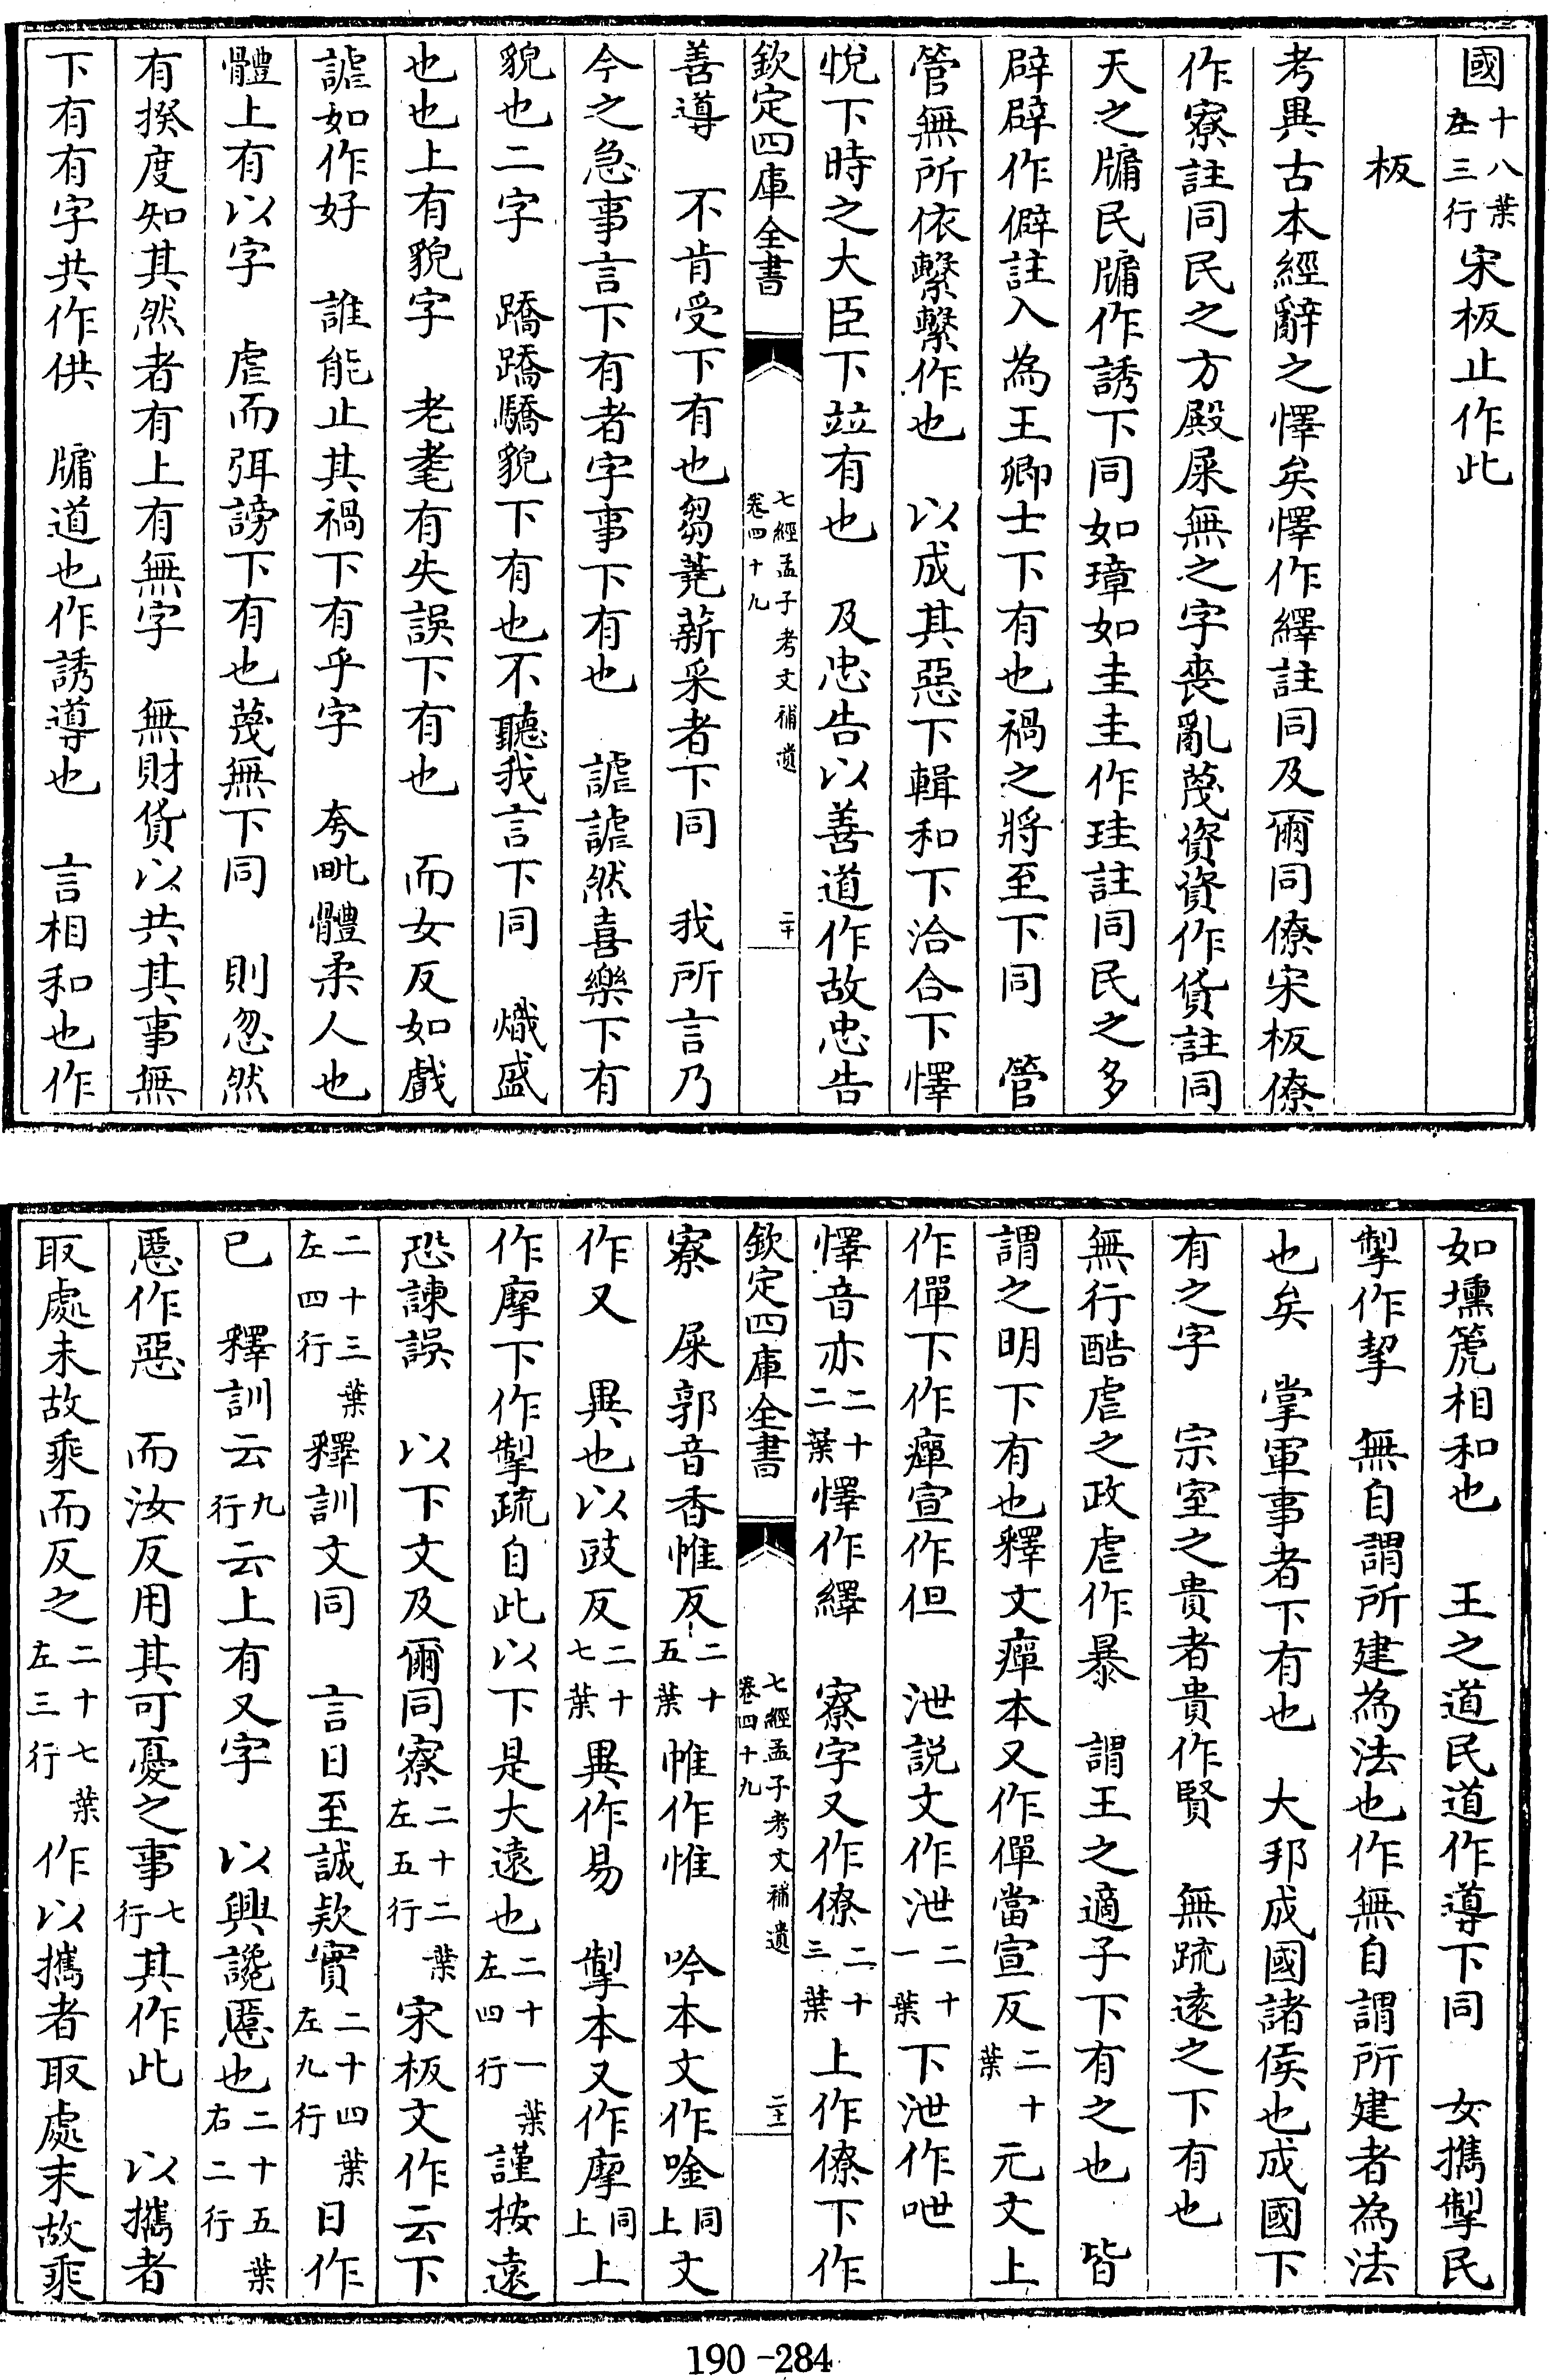 國十八葉左三行宋板止作此
板
考異古本經辭之懌矣懌作繹註同及爾同僚宋板僚
作寮註同民之方殿屎無之字喪亂蔑資資作貨註同
天之牖民牖作誘下同如璋如圭圭作珪註同民之多
辟辟作僻註入為王卿士下有也禍之將至下同　管
管無所依繫繫作也　以成其惡下輯和下洽合下懌
悅下時之大臣下竝有也　及忠告以善道作故忠告
欽定四庫全書　七經孟子考文補遺卷四十九　二十
善導　不肯受下有也芻蕘薪采者下同　我所言乃
今之急事言下有者字事下有也　謔謔然喜樂下有
貌也二字　蹻蹻驕貌下有也不聽我言下同　熾盛
也也上有貌字　老耄有失誤下有也　而女反如戲
謔如作好　誰能止其禍下有乎字　夸毗體柔人也
體上有以字　虐而弭謗下有也蔑無下同　則忽然
有揆度知其然者有上有無字　無財貨以共其事無
下有有字共作供　牖道也作誘導也　言相和也作
如壎箎相和也　王之道民道作導下同　女攜掣民
掣作挈　無自謂所建為法也作無自謂所建者為法
也矣　掌軍事者下有也　大邦成國諸侯也成國下
有之字　宗室之貴者貴作賢　無疏遠之下有也
無行酷虐之政虐作暴　謂王之適子下有之也　皆
謂之明下有也釋文癉本又作僤當宣反二十葉元文上
作僤下作癉宣作但　泄説文作泄二十一葉下泄作呭
懌音亦二十二葉懌作繹　寮字又作僚二十三葉上作僚下作
欽定四庫全書　七經孟子考文補遺卷四十九　二十一
寮　屎郭音香惟反二十五葉惟作惟　吟本文作唫同上文
作又　異也以豉反二十七葉異作易　掣本又作摩同上上
作摩下作掣疏自此以下是大遠也二十一葉左四行謹按遠
恐諫誤　以下文及爾同寮二十二葉左五行宋板文作云下
二十三葉左四行釋訓文同　言日至誠欵實二十四葉左九行日作
已　釋訓云九行云上有又字　以興讒慝也二十五葉右二行
慝作惡　而汝反用其可憂之事七行其作此　以攜者
取處末故乘而反之二十七葉左三行作以攜者取處末故乘
190-284